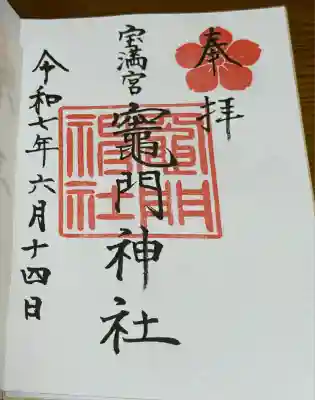 奉拝
宝満宮
竈門神社
令和七年六月十四日
竈門神社